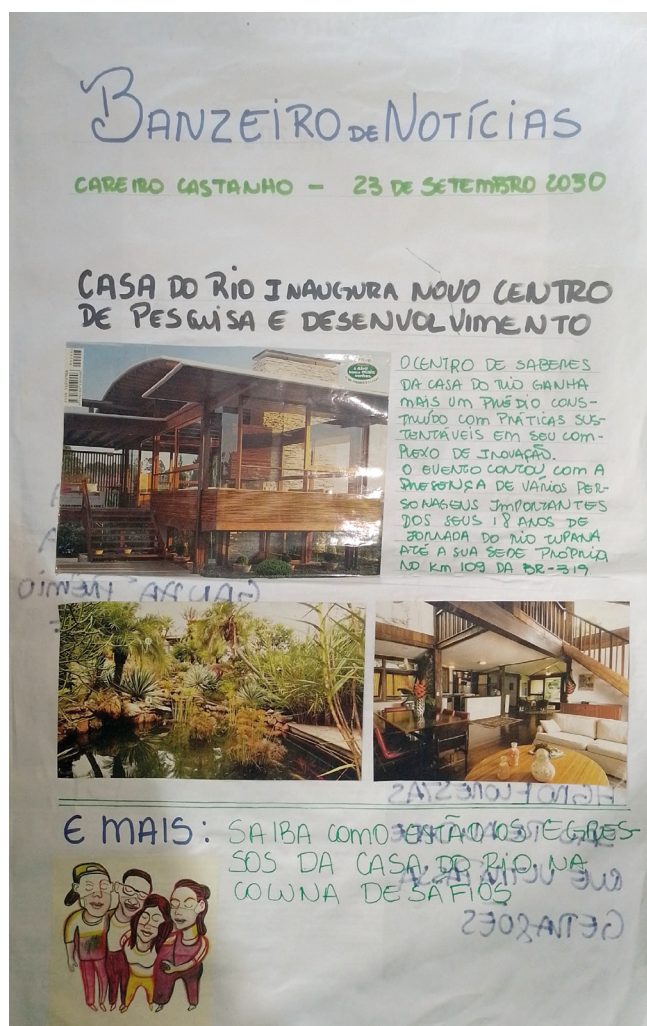 BANZEIRO DE NOTÍCIAS
CAREIRO CASTANHO - 23 DE SETEMBRO 2030
CASA DO RIO INAUGURA NOVO CENTRO
DE PESQUISA E DESENVOLVIMENTO
O CENTRO DE SABERES
DA CASA DO RIO GANHA
MAIS UM PRÉDIO CONS-
TRUÍDO COM PRÁTICAS SUS-
TENTÁVEIS EM SEU COM-
PLEXO DE INOVAÇÃO.
O EVENTO CONTOU COM A
PRESENÇA DE VÁRIOS PER-
SONAGENS IMPORTANTES
DOS SEUS 18 ANOS DE
JORNADA DO RIO TUPANA
ATÉ A SUA SEDE PRÓPRIA
NO KM 109 DA BR-319.
GANHA PRÊMIO
AGROFLORESTAS
E MAIS: SAIBA COMO ESTÃO OS EGRES-
SOS DA CASA DO RIO NA
COLUNA DESAFIOS
GERAÇÕES